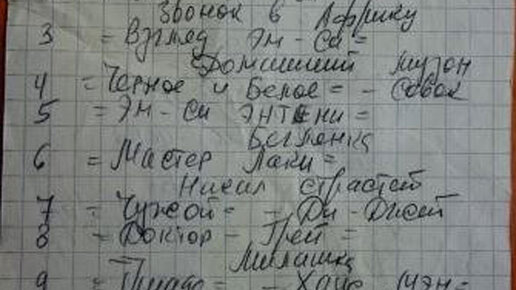 Звонок в Африку
3 = Взгляд Эм-Си =
Домашний музон
4 = Черное и Белое = - Совок
5 = Эм-Си ЭНТЕНИ =
Беглянка
6 = Мастер Лаки =
Накал страстей
7 - Чужой = - Ди-Джей
8 - Доктор - Грей =
Милашка
9 =